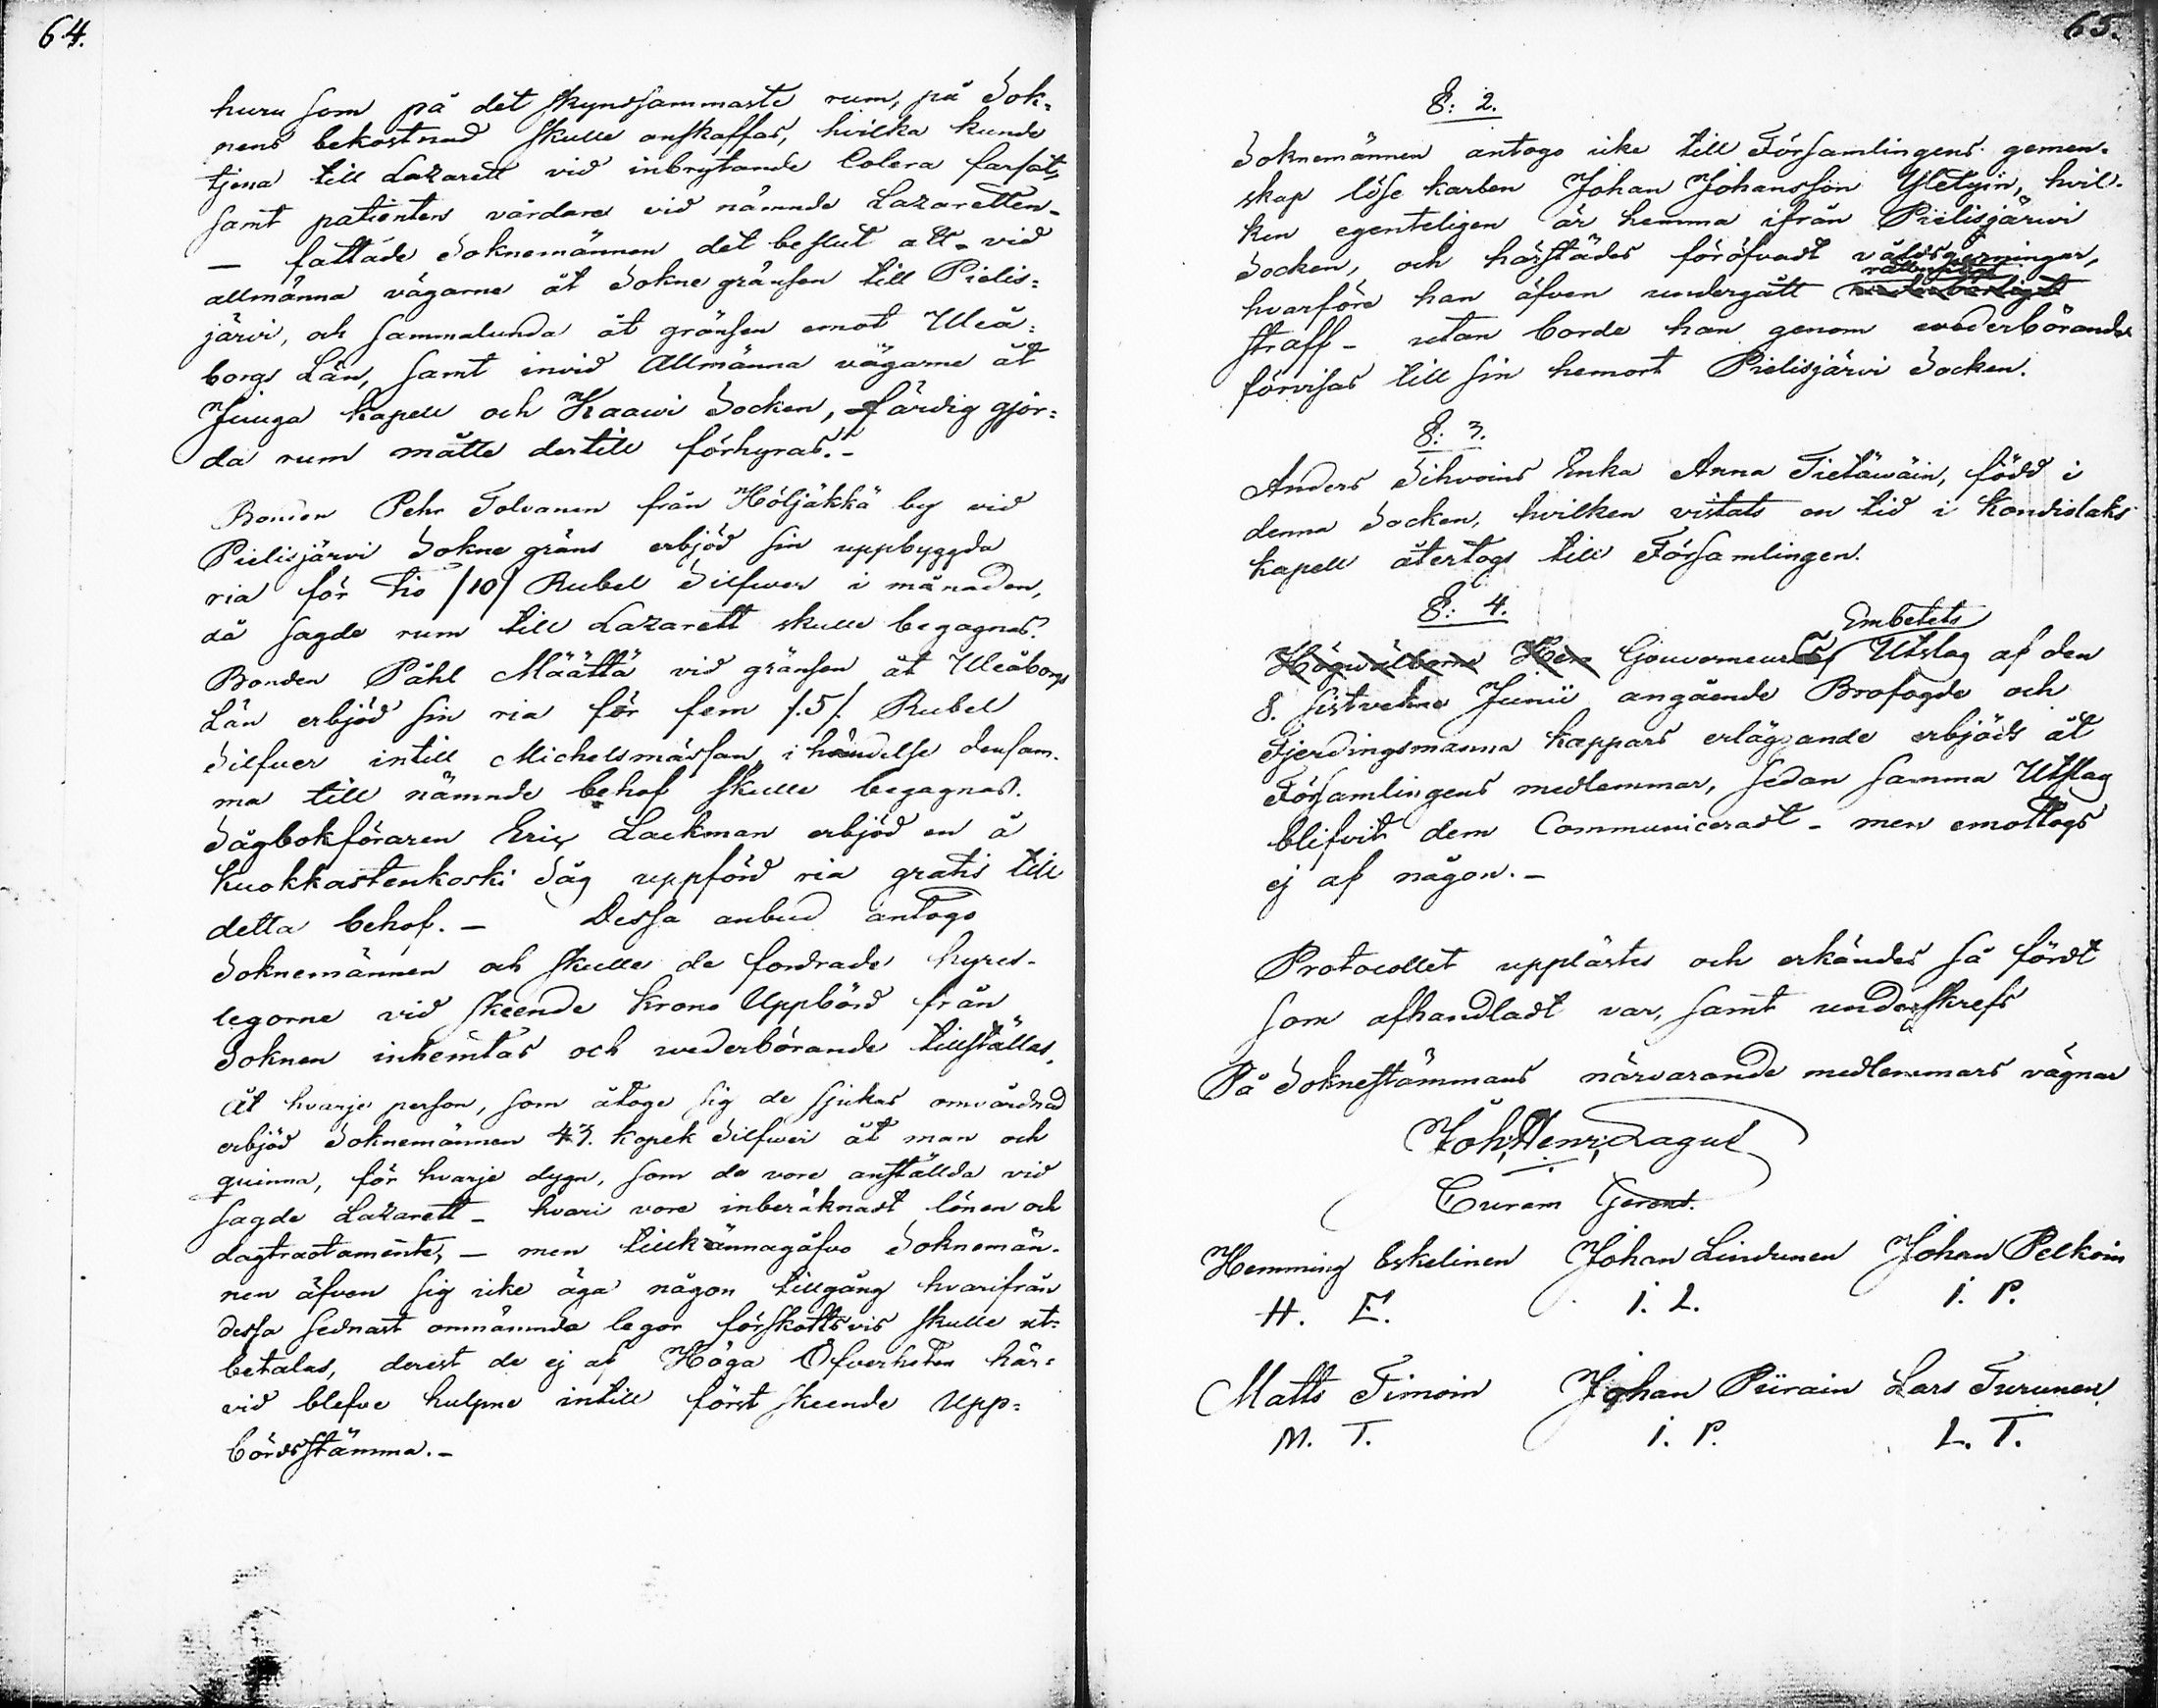 64.
huru som på det skyndsammaste rum, på Sok=
nens bekostnad skulle anskaffas, hvilka kunde
tjena till Lazarett vid inbrytande Colera farsåt,
samt patienten vårdare vid nämnde Lazaretten-
— fattade Soknemännen det beslut att - vid
allmänna vägarne åt Sokne gränsen till Pielis=
järvi, och sammalunda åt gränsen emot Uleå=
borgs Län, samt invid Allmänna vägarne åt
Juuga kapell och Kaawi Socken, färdig gjor=
da rum måtte dertill förhyras.-
Bonden Pehr Tolvanen från Höljäkkä by vid
Pielisjärvi Sokne gräns erbjöd sin uppbyggda
ria för tio /10/ Rubel Silfwer i månaden,
då sagde rum till Lazarett skulle begagnas.
Bonden Påhl Määttä vid gränsen åt Uleåborgs
Län erbjöd sin ria för fem /.5/. Rubel
Silfver intill Michelsmässan, i händelse densam-
ma till nämnde behof skulle begagnas.
Sågbokföraren Eric Lackman erbjöd en å
Kuokkastenkoski Såg uppförd ria gratis till
detta behof. - Dessa anbud antogo
Soknemännen och skulle de fordrade hyres-
legorne vid skeende Krono Uppbörd från
Soknen inhemtas och wederbörande tillställas.
Åt hvarje person, som åtoge sig de sjukas omvårdnad
erbjöd Soknemännen 43. kopek Silfwer åt man och
quinna, för hvarje dygn, som de vore anställda vid
sagde Lazarett - hvari vore inberäknadt lönen och
dagtractamente, - men tillkännagåfvo Soknemän-
nen äfven sig icke äga någon tillgång hvarifrån
dessa sednast omnämnda legor förskottsvis skulle ut=
betalas, derest de ej af Höga Öfverheten här=
vid blefve hulpne intill först skeende Upp=
bördsstämma.-
65.
§: 2.
Soknemännen antogo icke till Församlingens gemen-
skap löse karlen Johan Johansson Yletyin, hvil-
ken egenteligen är hemma ifrån Pielisjärwi
Socken, och härstädes föröfvadt våldsgerningar,
hvarföre han äfven undergått
straff - utan borde han genom wederbörande
förvisas till sin hemort Pielisjärvi Socken.
§: 3.
Anders Sihvoins Enka Anna Tietäwäin, född i
denna Socken, hvilken vistats en tid i Kondiolaks
kapell återtogs till Församlingen.
§: 4.
Embetets
Högwälborne Herr Gouverneurs Utslag af den
8. sistvekne Junii angående Brofogde och
Fjerdingsmanna kappars erläggande erbjöds åt
Församlingens medlemmar, sedan samma Utslag
blifvit dem Communiceradt - men emottogs
ej af någon.-
Protocollet upplästes och erkändes så fördt
som afhandladt var, samt underskrefs
På Soknestämmans närvarande medlemmars vägnar
Joh: Henr: Lagus
Curam Gerens.
Hemming Eskelinen Johan Lindunen Johan Pelkoin
H. E. I. L. I. P.
Matts Timoin Johan Piirain Lars Turunen
M. T. I. P. L. T.